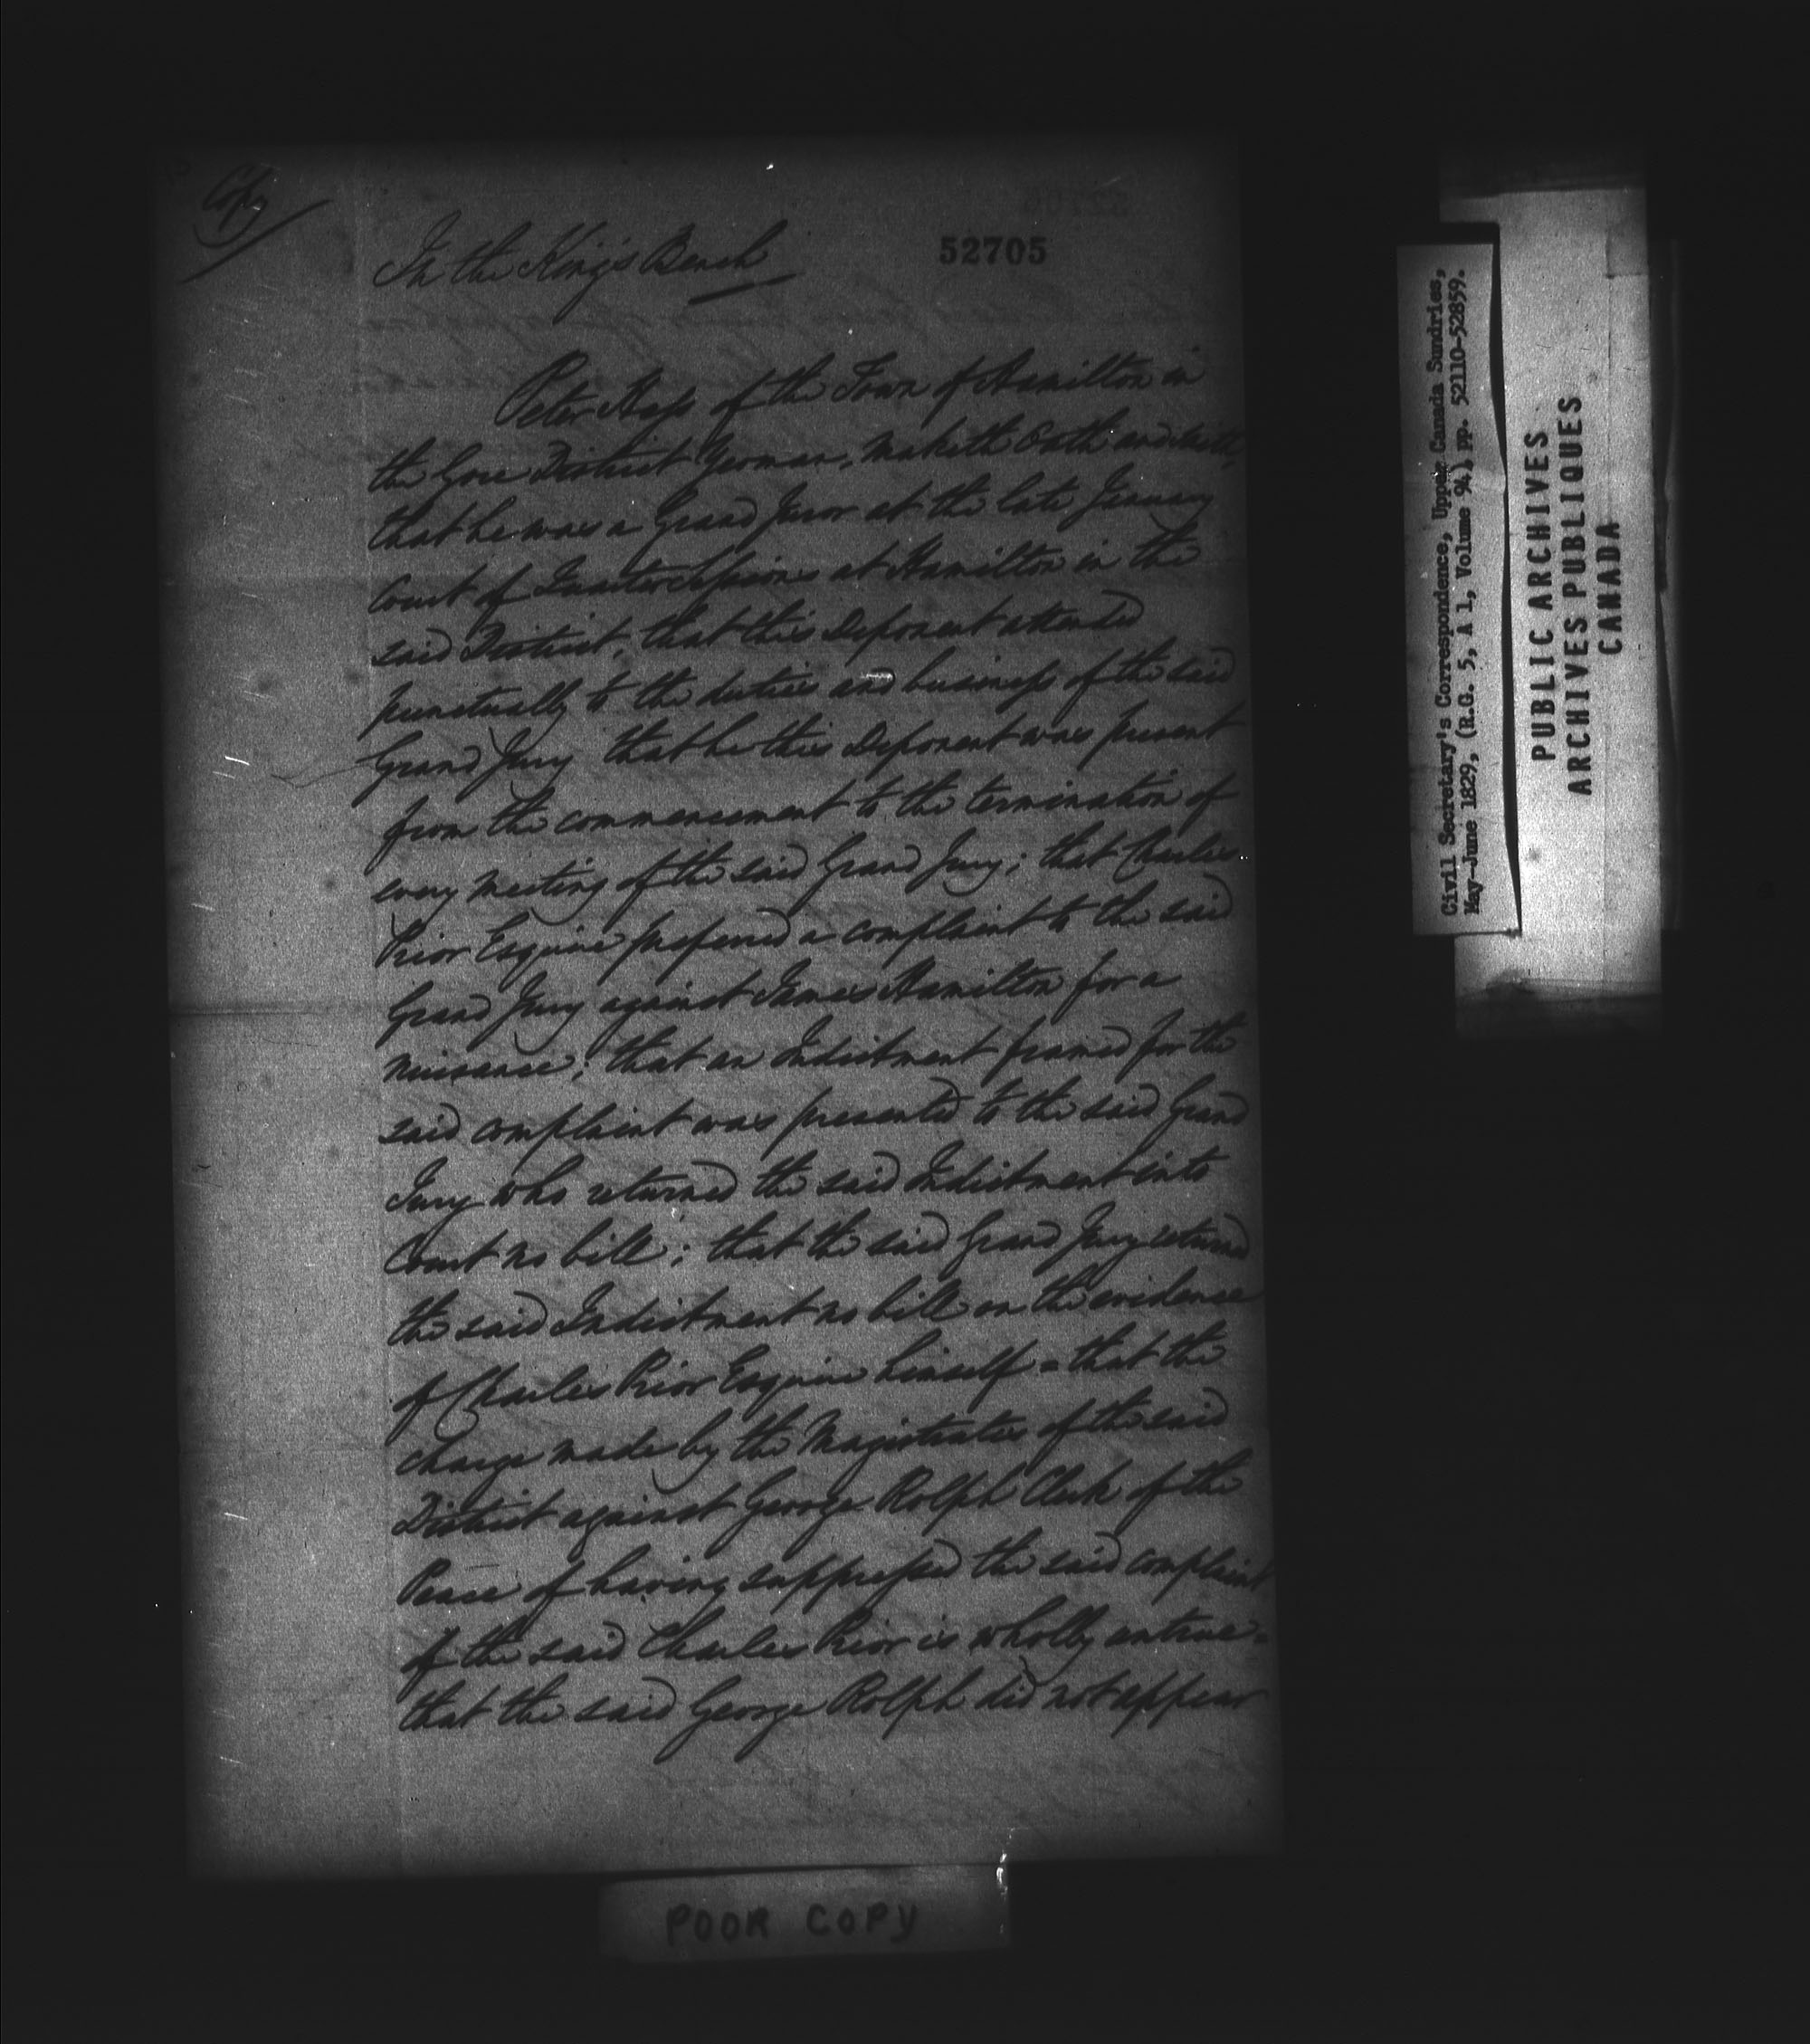 Copy
In the King's Bench
52705
Peter Hess of the Town of Hamilton in
the Gore District Yeoman, maketh Oath and saith,
that he was a Grand Juror at the late January
Court of Quarter Sessions at Hamilton in the
said District, that this Deponent attended
punctually to the duties and business of the said
Grand Jury that he this Deponent was present
from the commencement to the termination of
every meeting of the said Grand Jury; that Charles
Prior Esquire preferred a complaint to the said
Grand Jury against James Hamilton for a
nuisance; that an Indictment framed for the
said complaint was presented to the said Grand
Jury who returned the said Indictment into
Court no bill; that the said Grand Jury returned
the said Indictment no bill on the evidence
of Charles Prior Esquire himself = that the
charge made by the Magistrates of the said
District against George Rolph Clerk of the
Peace of having suppressed the said complaint
of the said Charles Prior is wholly untrue =
that the said George Rolph did not appear
Civil Secretary's Correspondence, Upper Canada Sundries,
May-June 1829, (R.G. 5, A 1, Volume 94) pp. 52110-52859.
PUBLIC ARCHIVES
ARCHIVES PUBLIQUES
CANADA
POOR COPY